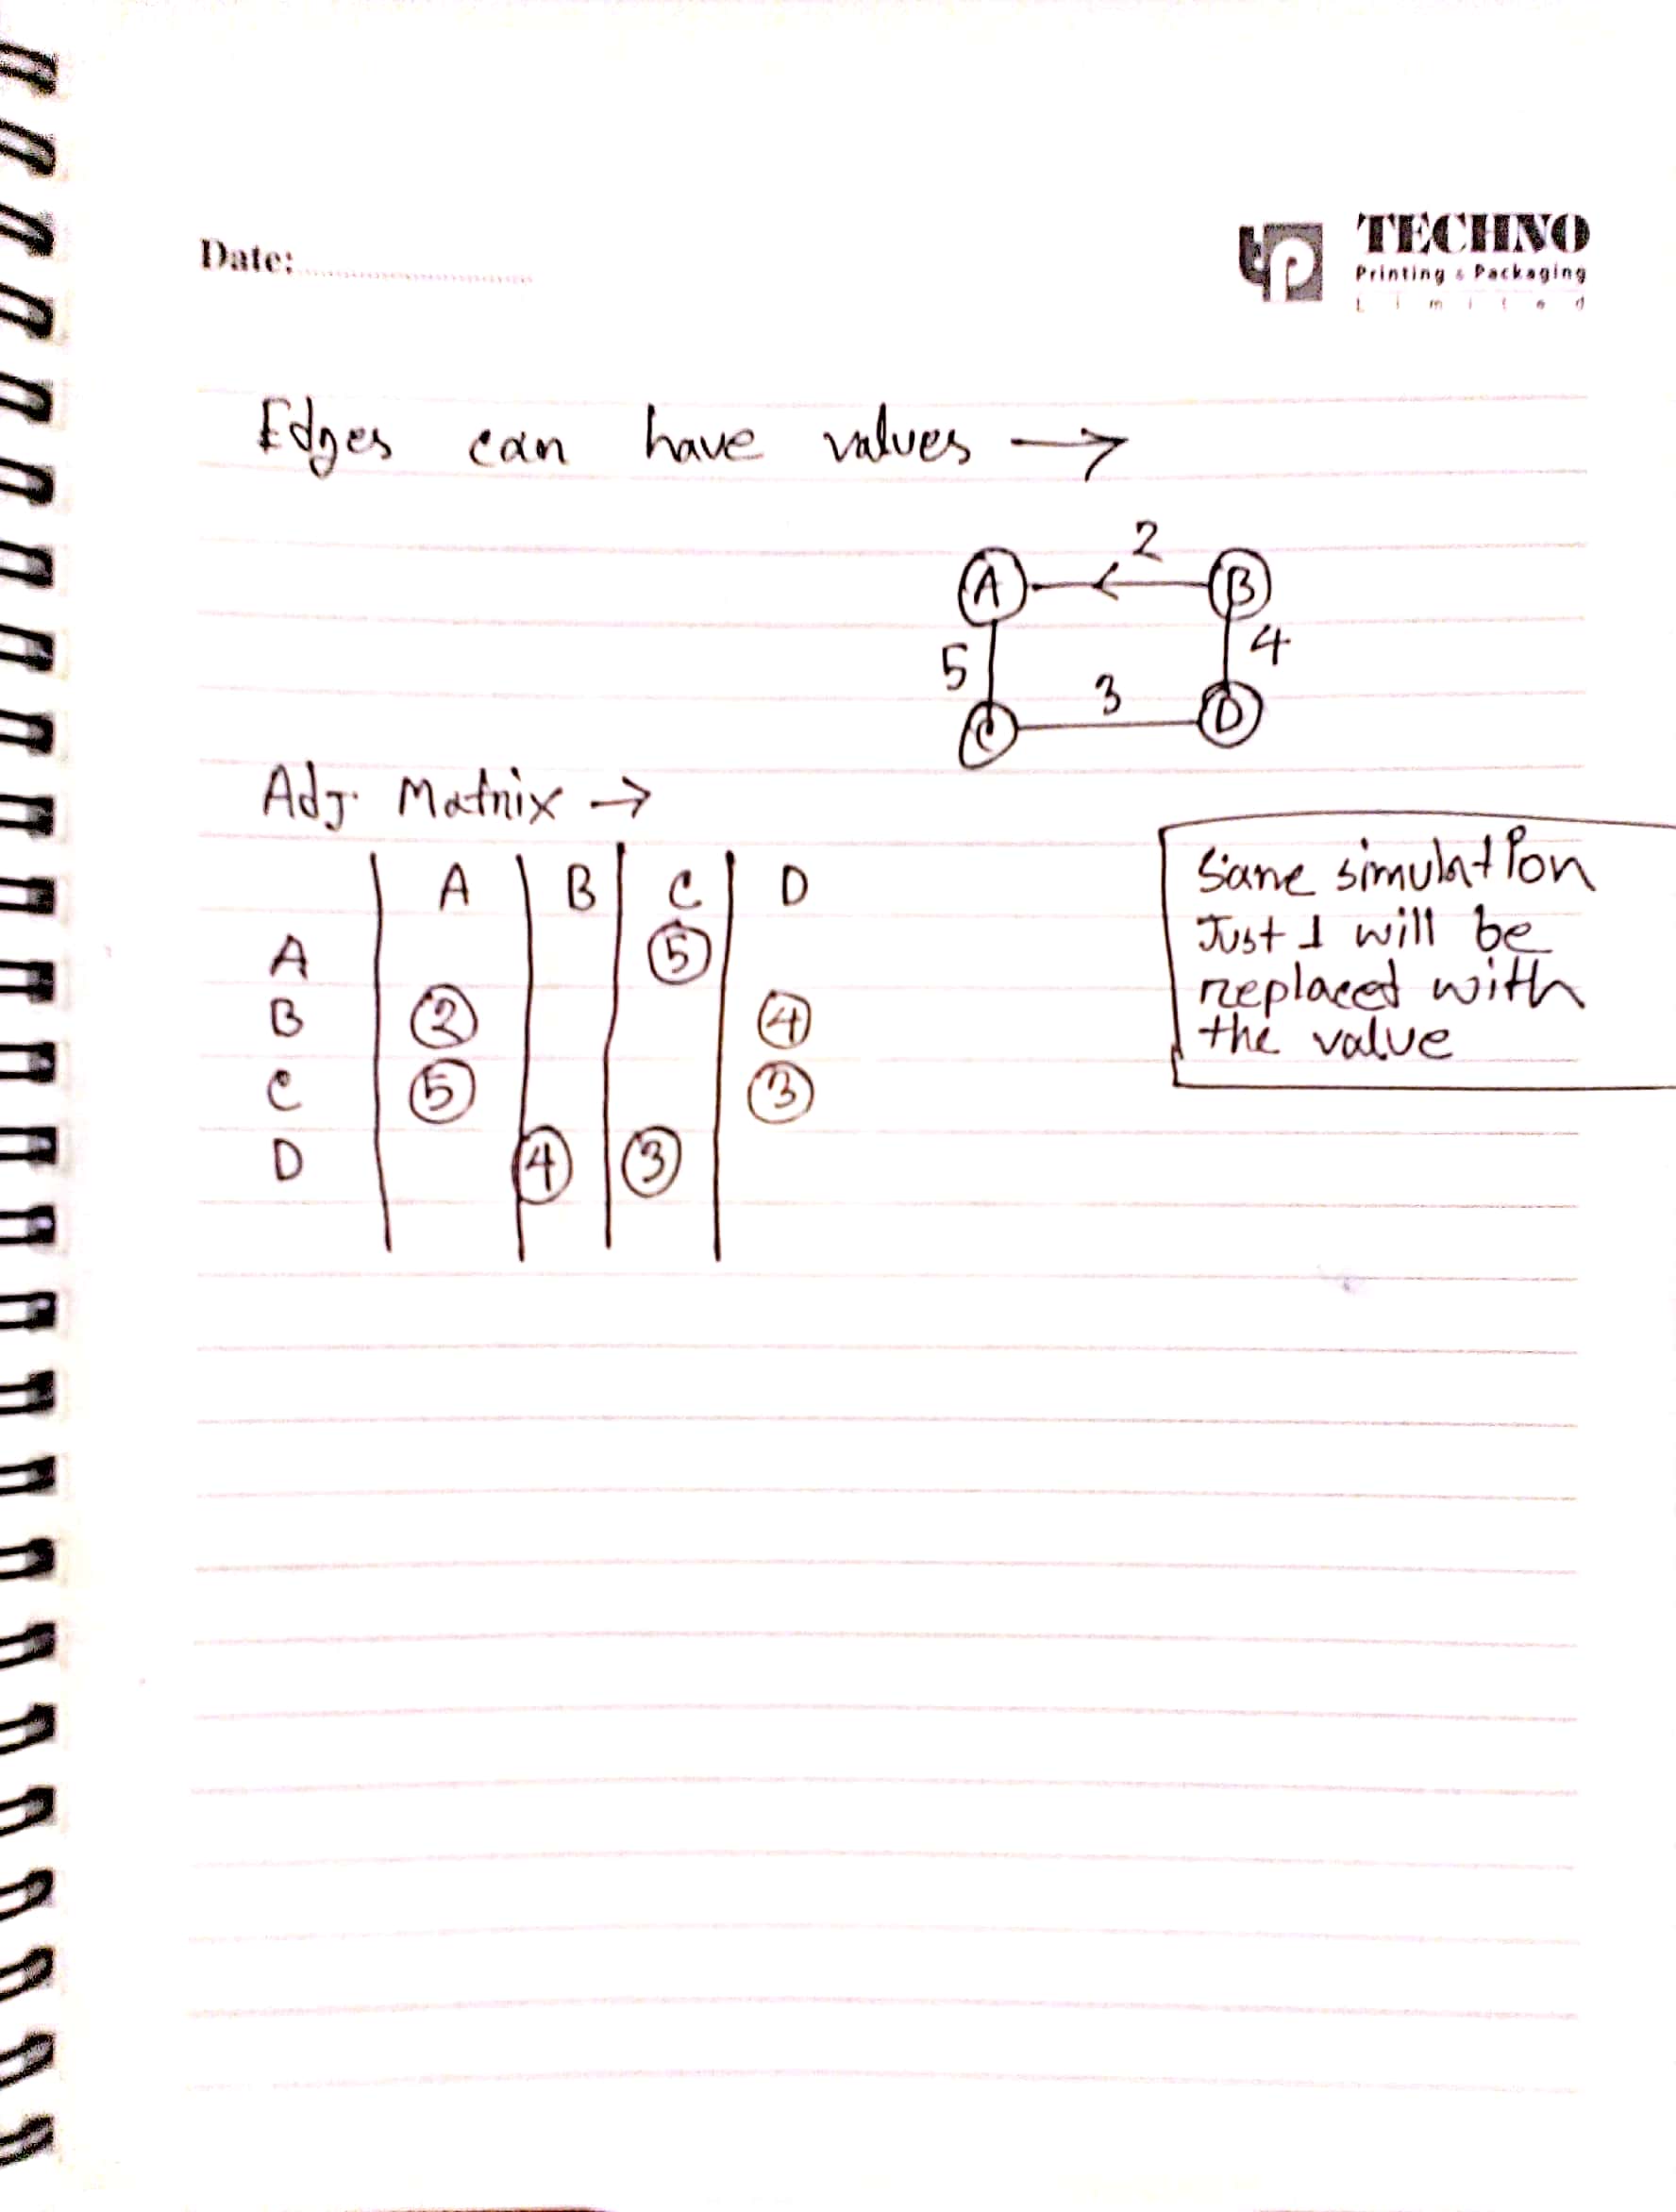 Date:
TECHNO
Printing & Packaging
Limited
Edges can have values →
A 2 B
5 4
3
C D
Adj. Matrix →
A B C D
A 5
B 2 4
C 5 3
D 4 3
Same simulation
Just 1 will be
replaced with
the value